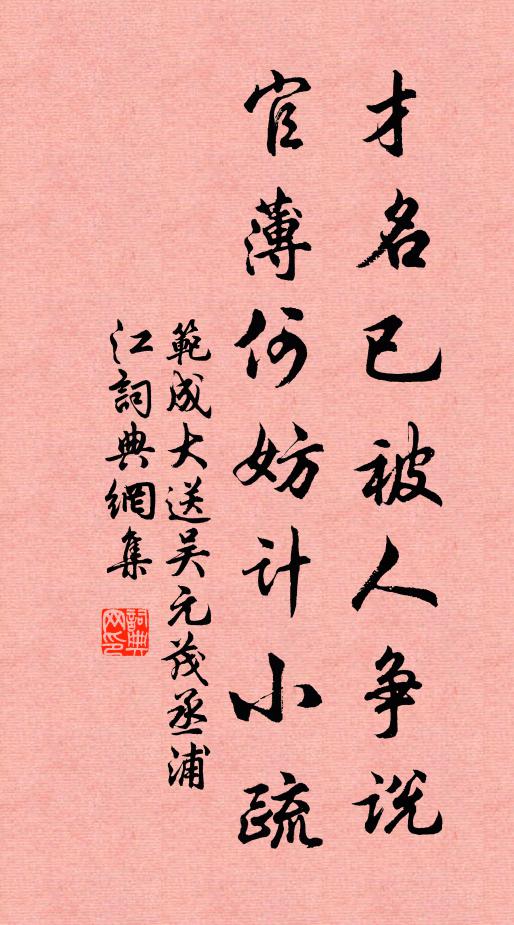 才名已被人争说
官薄何妨计小疏
範成大送吴元茂丞浦
江詞典網集
詞典
网印